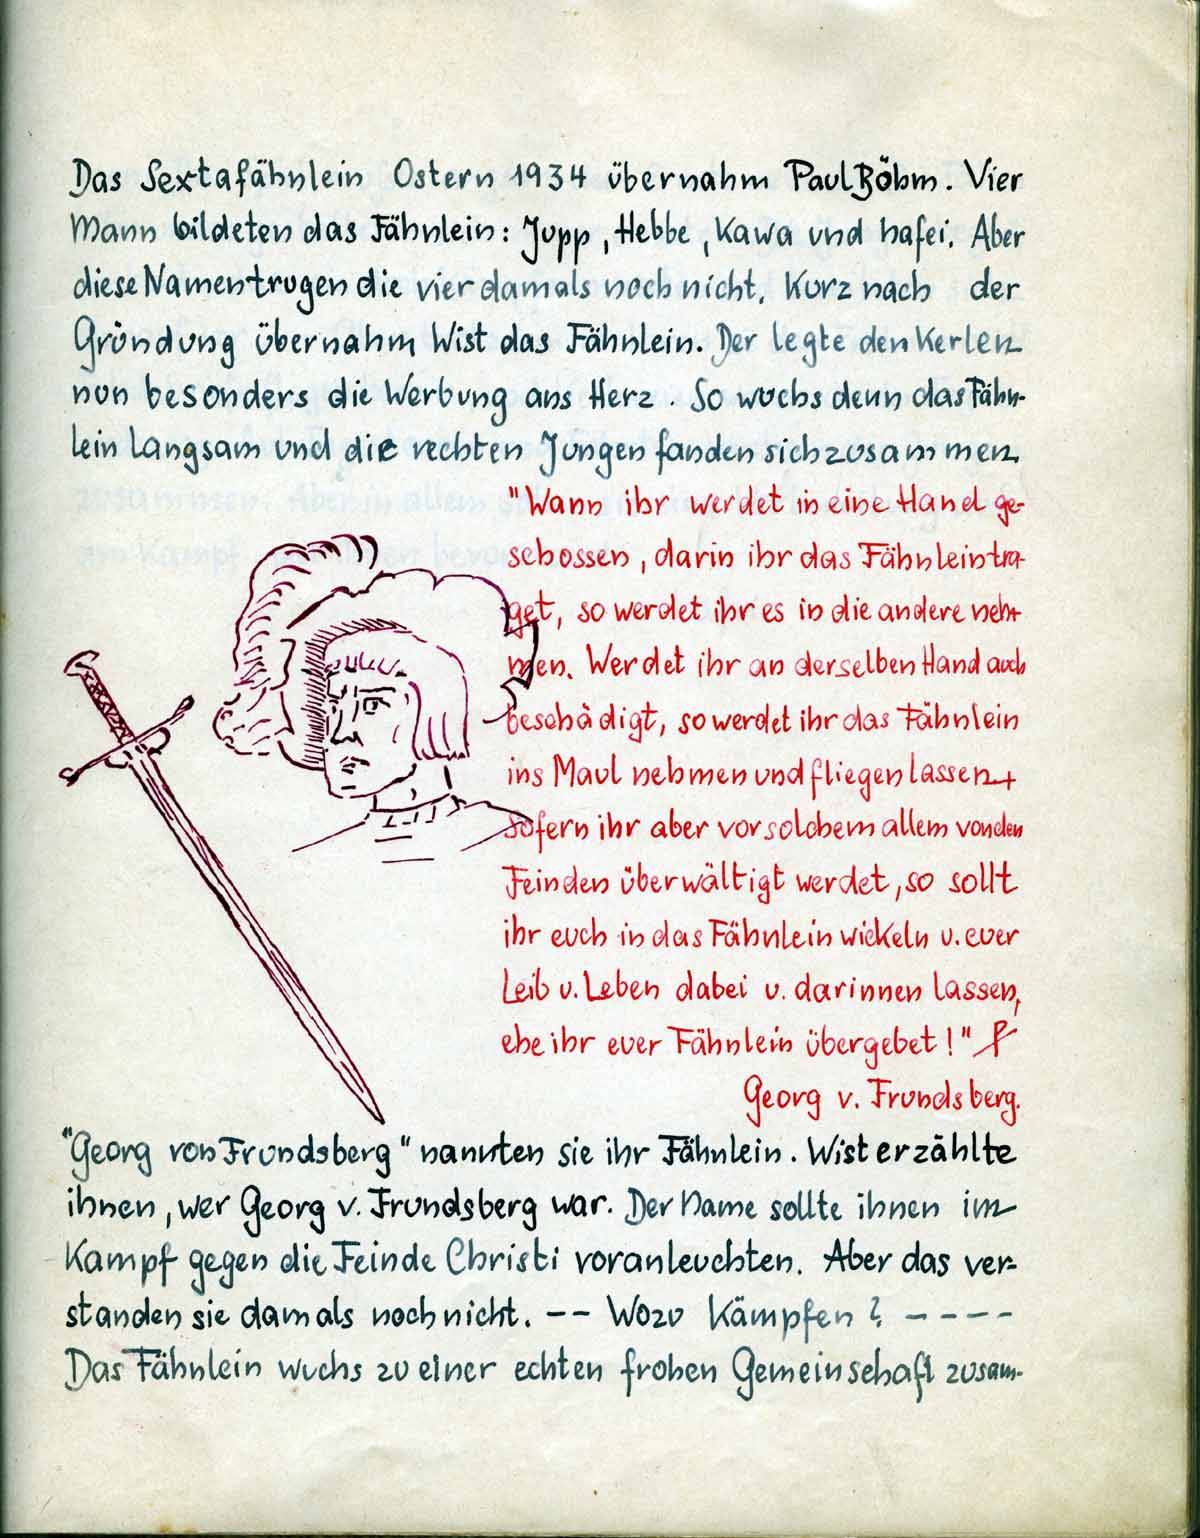 Das Sextafähnlein Ostern 1934 übernahm Paul Böhm. Vier
Mann bildeten das Fähnlein: Jupp, Hebbe, Kawa und hafei. Aber
diese Namen trugen die vier damals noch nicht. Kurz nach der
Gründung übernahm Wist das Fähnlein. Der legte den Kerlen
nun besonders die Werbung ans Herz. So wuchs denn das Fähn-
lein langsam und die rechten Jungen fanden sich zusammen.
"Wann ihr werdet in eine Hand ge-
schossen, darin ihr das Fähnlein tra-
get, so werdet ihr es in die andere neh-
men. Werdet ihr an derselben Hand auch
beschädigt, so werdet ihr das Fähnlein
ins Maul nehmen und fliegen lassen.
Sofern ihr aber vor solchem allem von den
Feinden überwältigt werdet, so sollt
ihr euch in das Fähnlein wickeln u. euer
Leib u. Leben dabei u. darinnen lassen,
ehe ihr euer Fähnlein übergebet!"
Georg v. Frundsberg.
"Georg von Frundsberg" nannten sie ihr Fähnlein. Wist erzählte
ihnen, wer Georg v. Frundsberg war. Der Name sollte ihnen im
Kampf gegen die Feinde Christi voranleuchten. Aber das ver-
standen sie damals noch nicht. -- Wozu Kämpfen? ----
Das Fähnlein wuchs zu einer echten frohen Gemeinschaft zusam-